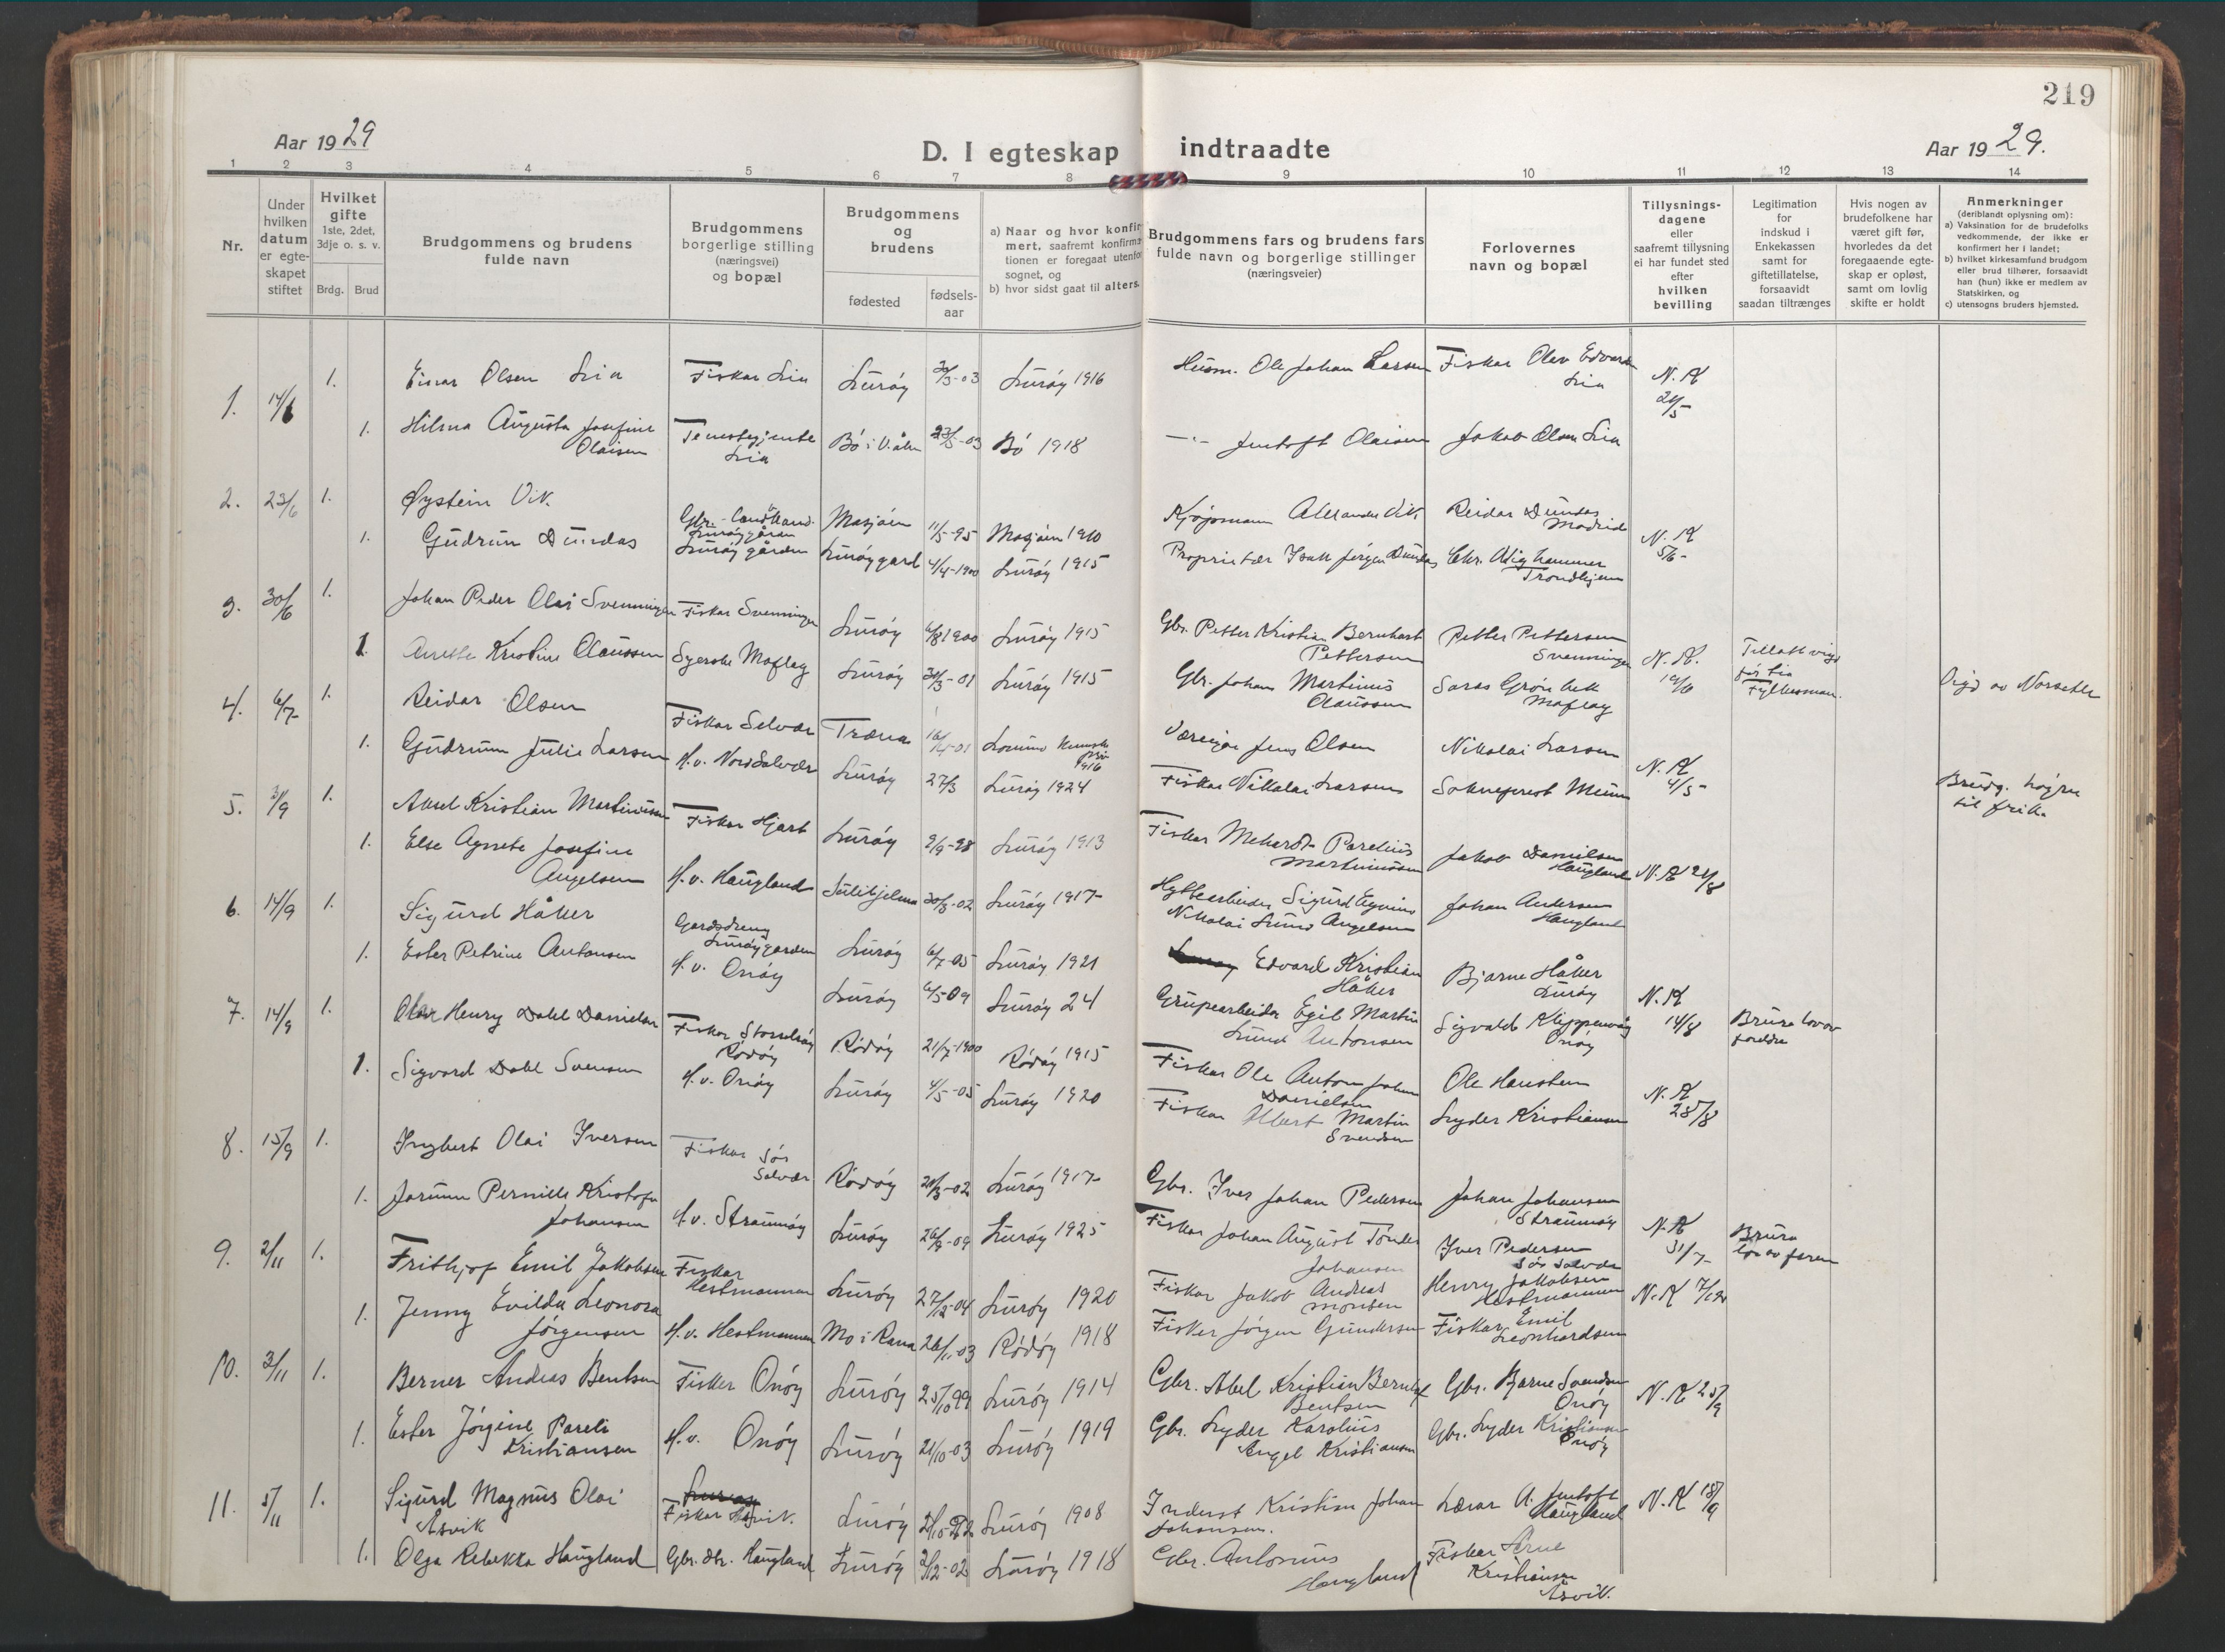 219
Aar 1929
D. I egteskap indtraadte
Aar 1929.
1 2 3 4 5 6 7 8 9 10 11 12 13 14
Nr.
Under hvilken datum er egteskapet stiftet
Hvilket gifte 1ste, 2det, 3dje o. s. v.
Brdg. Brud
Brudgommens og brudens fulde navn
Brudgommens borgerlige stilling (næringsvei) og bopæl
Brudgommens og brudens
fødested
fødsels-aar
a) Naar og hvor konfir-
mert, saafremt konfirma-
tionen er foregaat utenfor
sognet, og
b) hvor sidst gaat til alters.
Brudgommens fars og brudens fars
fulde navn og borgerlige stillinger
(næringsveier)
Forlovernes
navn og bopæl
Tillysnings-
dagene
eller
saafremt tillysning
ei har fundet sted
efter
hvilken
bevilling
Legitimation
for
indskud i
Enkekassen
samt for
giftetillatelse,
forsaavidt
saadan tiltrænges
Hvis nogen av
brudefolkene har
været gift før,
hvorledes da det
foregaaende egte-
skap er opløst,
samt om lovlig
skifte er holdt
Anmerkninger
(deriblandt oplysning om):
a) Vaksination for de brudefolks
vedkommende, der ikke er
konfirmert her i landet;
b) hvilket kirkesamfund brudgom
eller brud tilhører, forsaavidt
han (hun) ikke er medlem av
Statskirken, og
c) utensogns bruders hjemsted.
1. 14/6 1. Einar Olsen Lia Fiskar Lia Lurøy 1916 Husm. Ole Johan Larsen Fiskar Olav Edvard Lia N.K
1. Hilma Augusta Josefine Olaisen Tenestgjente Lia Bø 1918 Jentoft Olaisen Jakob Olsen Lia
2. 23/6 1. Øystein Vik. Mosjøen 11/5-95 Mosjøen 1910 Kjøpmann Alexander Vik Reidar Dundas Madrid N.K 5/6-
1. Gudrun Dundas Lurøygården Lurøygard 4/4-1900 Lurøy 1915 Proprietær Isak Jørgen Dundas Trondhjem
3. 30/6 1. Johan Peder Olai Svenningen Fiskar Svenningen Lurøy 6/8 1900 Lurøy 1915 Gbr. Petter Kristian Bernhart Pettersen Petter Pettersen Svenningen N.K. Tillatt vigd
1. Anette Kristine Claussen Syerske Moflag Lurøy Lurøy 1915 Gbr. Johan Martinus Claussen Moflag
4. 6/7 1. Reidar Olsen Fiskar Selvær Træna Jens Olsen Nikolai Larsen N.K 4/5
1. Gudrun Julie Larsen H.v. Nord Solvær Lurøy 27/3 Lurøy 1924 Fiskar Nikolai Larsen Sokneprest
5. 1. Aksel Kristian Martinussen Fiskar Hjart Lurøy 9/9-98 Lurøy 1913 Fiskar Parelius Martinussen Jakob Danielsen Haugland N.K 21/8
1. Else Agnete Josefine Angelsen H.v. Haugland Sulitjelma Lurøy 1917 Sigurd Nikolai Lund Angelsen Johan Andersen Haugland
6. 14/9 1. Sigurd Håker Gardsdreng Lurøygarden Lurøy 6/7-05 Lurøy 1921 Edvard Kristian Håker Bjarne Håker Lurøy N.K 14/8
1. Ester Petrine Antonsen H.v. Onøy Lurøy 6/5-09 Lurøy 24 Grupearbeider Egil Martin Lund Antonsen Sigvald Klippenvåg Onøy
7. 14/9 1. Olav Henry Dahl Danielsen Fiskar Rødøy Rødøy 21/7-1900 Rødøy 1915 Fiskar Ole Anton Johan Danielsen Ole Haustein N.K 28/8
1. Sigvard Dahl Svensen H.v. Onøy Lurøy 4/5-05 Lurøy 1920 Fiskar Albert Martin Svendsen Lyder Kristiansen
8. 15/9 1. Ingbert Olai Iversen Fiskar Sør Solvær Rødøy Lurøy 1917 Gbr. Iver Johan Pedersen Johan Johansen Straumøy N.K 31/7-
1. Pernille Kristofa Johansen H.v. Straumøy Lurøy Lurøy 1925 Fiskar Johan August Tønder Johansen Iver Pedersen Sør Solvær
9. 2/11 1. Frithjof Emil Jakobsen Fiskar Hestmannen Lurøy 27/12-04 Lurøy 1920 Fiskar Jakob Andreas Monsen Henry Jakobsen Hestmannen N.K
1. Jenny Evilda Leonora Jørgensen H.v. Hestmannen Mo i Rana 26/11-03 Rødøy 1918 Fisker Jørgen Gundersen Fiskar Emil Leonhardsen
10. 3/11 1. Berner Andreas Bentsen Fisker Onøy Lurøy 25/10 99 Lurøy 1914 Gbr. Abel Kristian Bentsen Gbr. Bjarne Svendsen Onøy N.K 25/9
1. Ester Jørgine Pareli Kristiansen H.v. Onøy Lurøy 21/10-03 Lurøy 1919 Gbr. Lyder Karolius Angel Kristiansen Gbr. Lyder Kristiansen Onøy
11. 5/11 1. Sigurd Magnus Olai Åsvik Fiskar Åsvik. Lurøy Lurøy 1908 Inderst Kristian Johan Johansen. Lærar A. Jentoft Haugland N.K 18/9
1. Olga Rebekka Haugland Gbr. dtr. Haugland Lurøy 2/12-02 Lurøy 1918 Gbr. Antonius Haugland Fiskar Arne Kristiansen Åsvik.